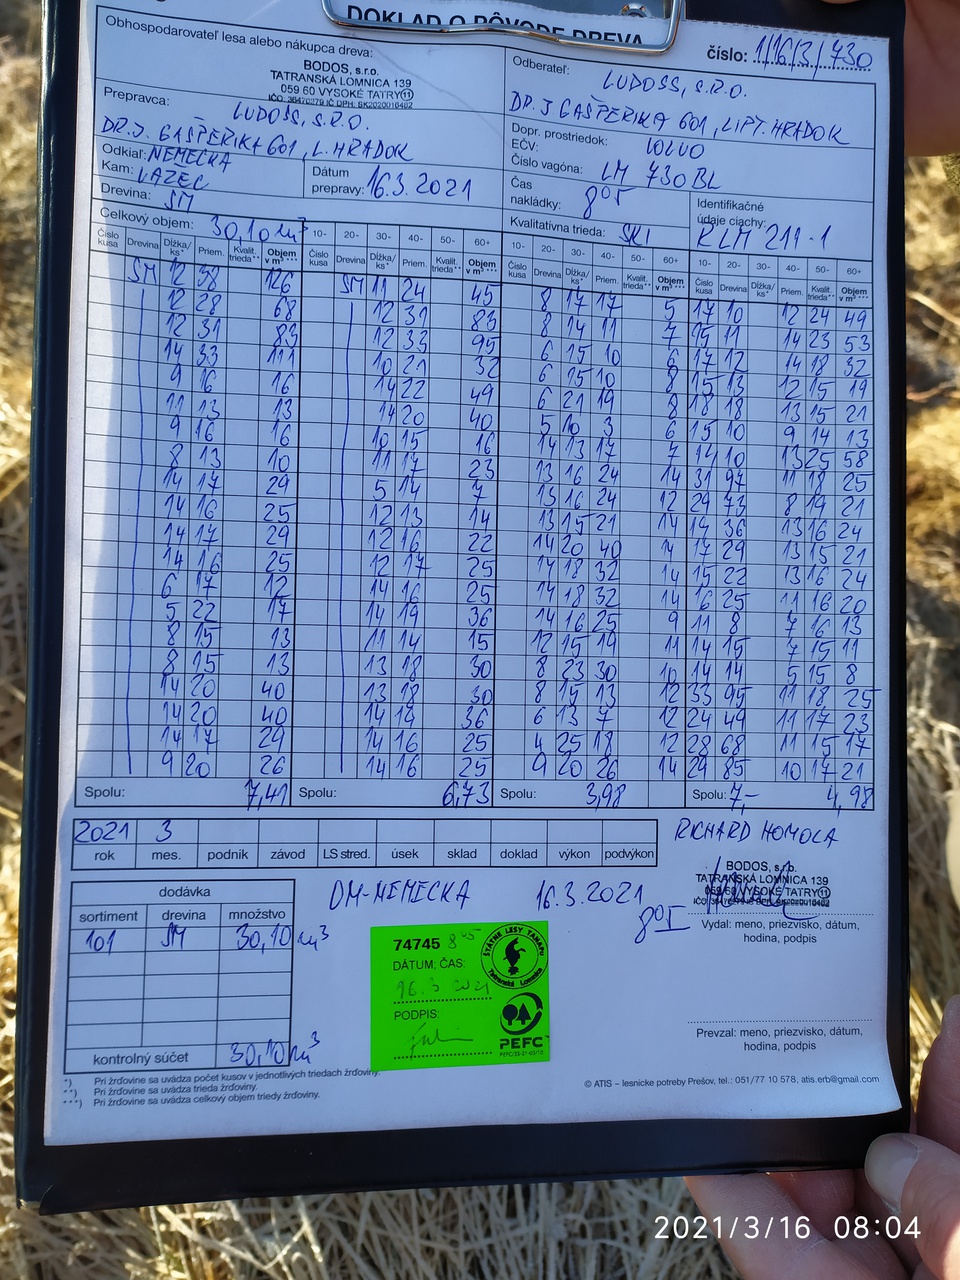 DOKLAD O PÔVODE DREVA
číslo: 1/16/3/730
Obhospodarovateľ lesa alebo nákupca dreva:
BODOS, s.r.o.
TATRANSKÁ LOMNICA 139
059 60 VYSOKÉ TATRY 11
IČO: 36470279 IČ DPH: SK2020016402
Odberateľ:
LUDOSS, S.R.O.
DR. J GAŠPERIKA 601, LIPT. HRADOK
Prepravca:
LUDOSS, S.R.O.
DR. J. GAŠPERIKA 601, L. HRADOK
Odkiaľ: NEMECKA
Kam: VAZEC
Dátum prepravy: 16.3. 2021
Drevina: SM
Celkový objem: 30,10 m³
Dopr. prostriedok: VOLVO
EČV:
Číslo vagóna: LM 730 BL
Čas nakládky: 8 05
Identifikačné údaje ciachy:
RLM 211-1
Kvalitatívna trieda: SKI
10- 20- 30- 40- 50- 60+ 10- 20- 30- 40- 50- 60+ 10- 20- 30- 40- 50- 60+
Číslo kusa Drevina Dĺžka/ks* Priem. Kvalit. trieda** Objem v m³ ***
Číslo kusa Drevina Dĺžka/ks* Priem. Kvalit. trieda** Objem v m³ ***
Číslo kusa Drevina Dĺžka/ks* Priem. Kvalit. trieda** Objem v m³ ***
Číslo kusa Drevina Dĺžka/ks* Priem. Kvalit. trieda** Objem v m³ ***
SM 12 38 126 SM 11 24 45 8 17 17 5 17 10 12 24 49
12 28 68 12 31 83 8 14 11 7 15 11 14 23 53
12 31 83 12 33 95 6 15 10 6 17 12 14 18 32
14 33 111 10 21 32 6 15 10 8 15 13 12 15 19
9 16 16 14 22 49 6 21 19 8 18 18 13 15 21
11 13 13 14 20 40 5 10 3 6 15 10 9 14 13
9 16 16 10 15 16 14 13 17 7 14 10 13 25 58
8 13 10 11 17 23 13 16 24 14 31 97 11 18 25
14 17 29 5 14 7 13 16 24 12 29 73 8 19 21
14 16 25 12 13 14 13 15 21 14 19 36 13 16 24
14 17 29 12 16 22 14 20 40 14 17 29 13 15 21
14 16 25 12 17 25 14 18 32 14 15 22 13 16 24
6 17 12 14 16 25 14 18 32 14 16 25 11 16 20
5 22 17 14 19 36 14 16 25 9 11 8 7 16 13
8 15 13 11 14 15 12 15 19 11 14 15 7 15 11
8 15 13 13 18 30 8 23 30 10 14 14 5 15 8
14 20 40 13 18 30 8 15 13 12 33 95 11 18 25
14 20 40 14 19 36 6 13 7 12 24 49 11 17 23
14 17 29 14 16 25 4 25 18 12 28 68 11 15 17
9 20 26 14 16 25 9 20 26 14 29 85 10 17 21
Spolu: 7,41 Spolu: 6,73 Spolu: 3,98 Spolu: 7,- 4,98
2021 3
rok mes. podnik závod LS stred. úsek sklad doklad výkon podvýkon
RICHARD HOMOLA
BODOS, s.r.o.
TATRANSKÁ LOMNICA 139
059 60 VYSOKÉ TATRY 11
IČO: 36470279 IČ DPH: SK2020016402
dodávka
sortiment drevina množstvo
101 SM 30,10 m³
kontrolný súčet 30,10 m³
OM-NEMECKA 16.3.2021
8 05
Vydal: meno, priezvisko, dátum,
hodina, podpis
74745 8 05
DÁTUM, ČAS:
16.3 2021
PODPIS:
ŠTÁTNE LESY TANAPU
Tatranská Lomnica
PEFC
PEFC/23-21-03/10
Prevzal: meno, priezvisko, dátum,
hodina, podpis
*) Pri žrďovine sa uvádza počet kusov v jednotlivých triedach žrďoviny.
**) Pri žrďovine sa uvádza trieda žrďoviny.
***) Pri žrďovine sa uvádza celkový objem triedy žrďoviny.
© ATIS – lesnícke potreby Prešov, tel.: 051/77 10 578, atis.erb@gmail.com
2021/3/16 08:04